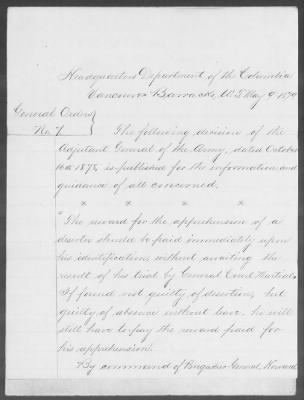 Headquarters Department of the Columbia
Vancouver Barracks, W.T. May 9" 1879
General Orders
No. 7.
The following decision of the
Adjutant General of the Army, dated October
16th 1878, is published for the information and
guidance of all concerned.
x x x x
"The reward for the apprehension of a
deserter should be paid immediately upon
his identification, without awaiting the
result of his trial by General Court Martial.
If found not guilty of desertion, but
guilty of absence without leave, he will
still have to pay the reward paid for
his apprehension.
By command of Brigadier General Howard